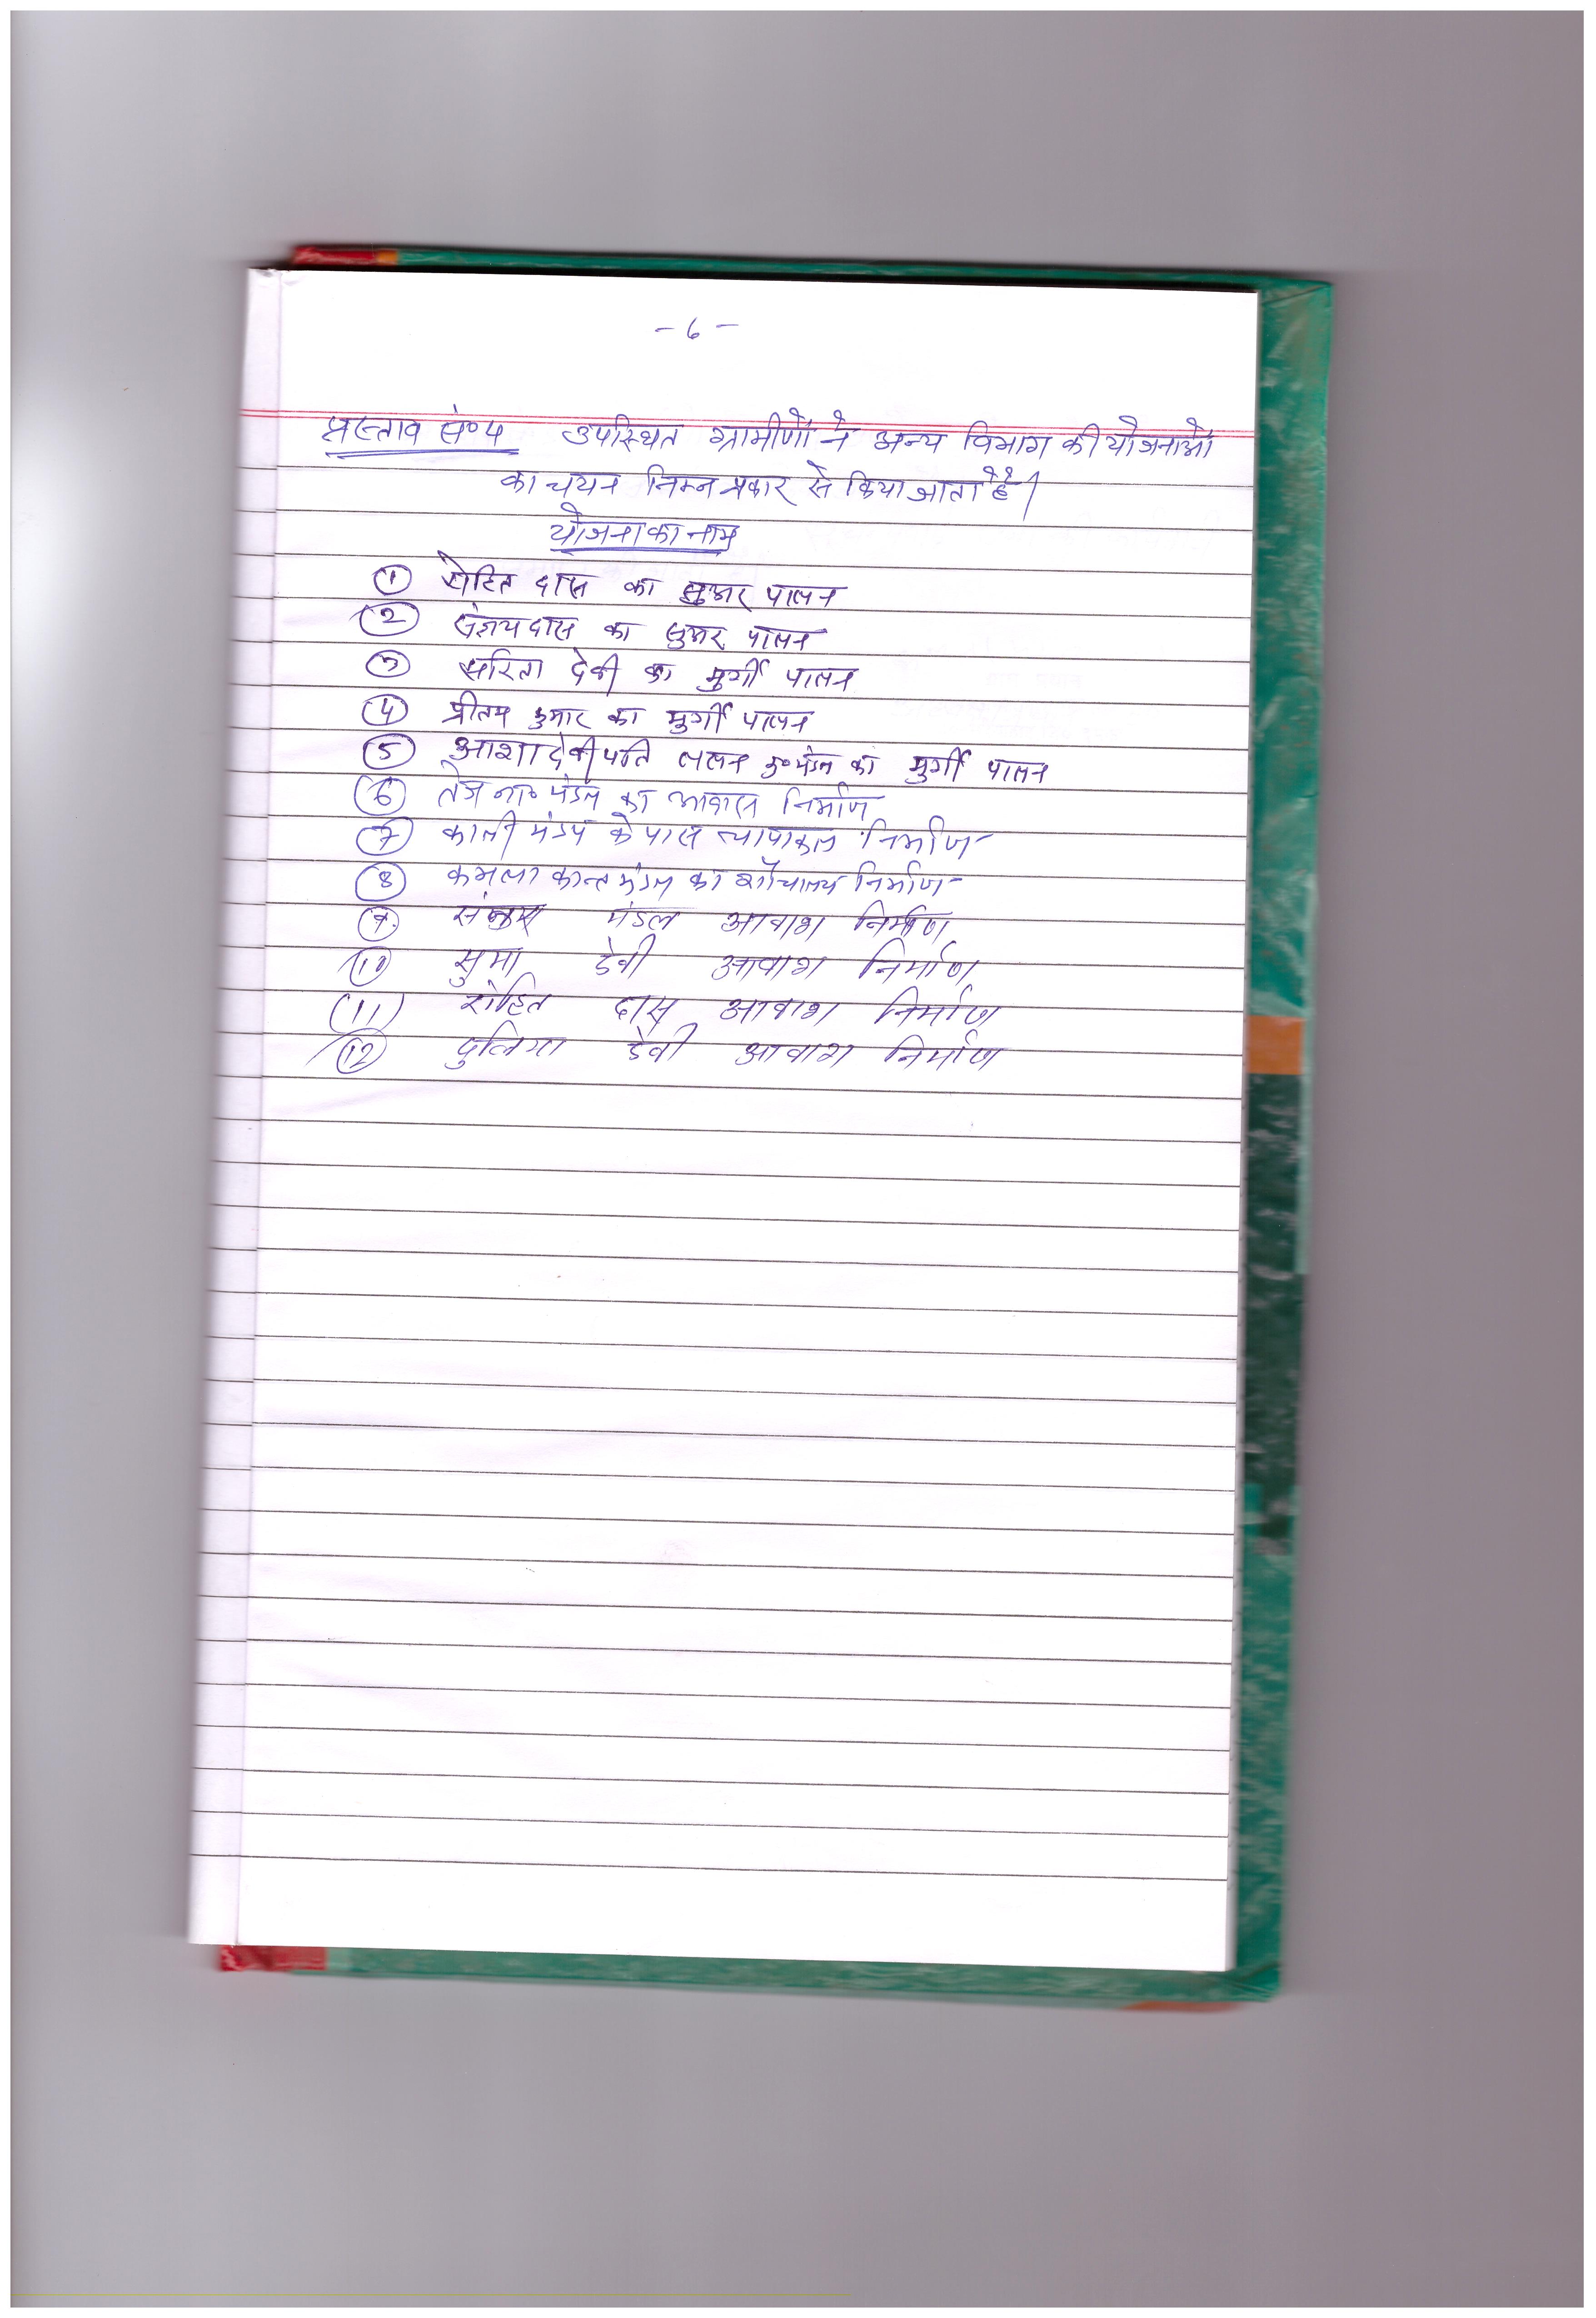 - 6 -
प्रस्ताव सं० ५ उपस्थित ग्रामीणों ने अन्य विभाग की योजनाओं
का चयन निम्न प्रकार से किया जाता है।
योजना का नाम
① रोहित दास का सुअर पालन
② संजय दास का सुअर पालन
③ सरिता देवी का मुर्गी पालन
④ प्रीतम कुमार का मुर्गी पालन
⑤ आशा देवी पति ललन कु० मंडल का मुर्गी पालन
⑥ तेज ना० मंडल का आवास निर्माण
⑦ काली मंडप के पास चापाकल निर्माण
⑧ कमला कान्त मंडल का शौचालय निर्माण
⑨ मंडल आवाश निर्माण
⑩ सुमा देवी आवाश निर्माण
(11) रोहित दास आवाश निर्माण
⑫ देवी आवाश निर्माण